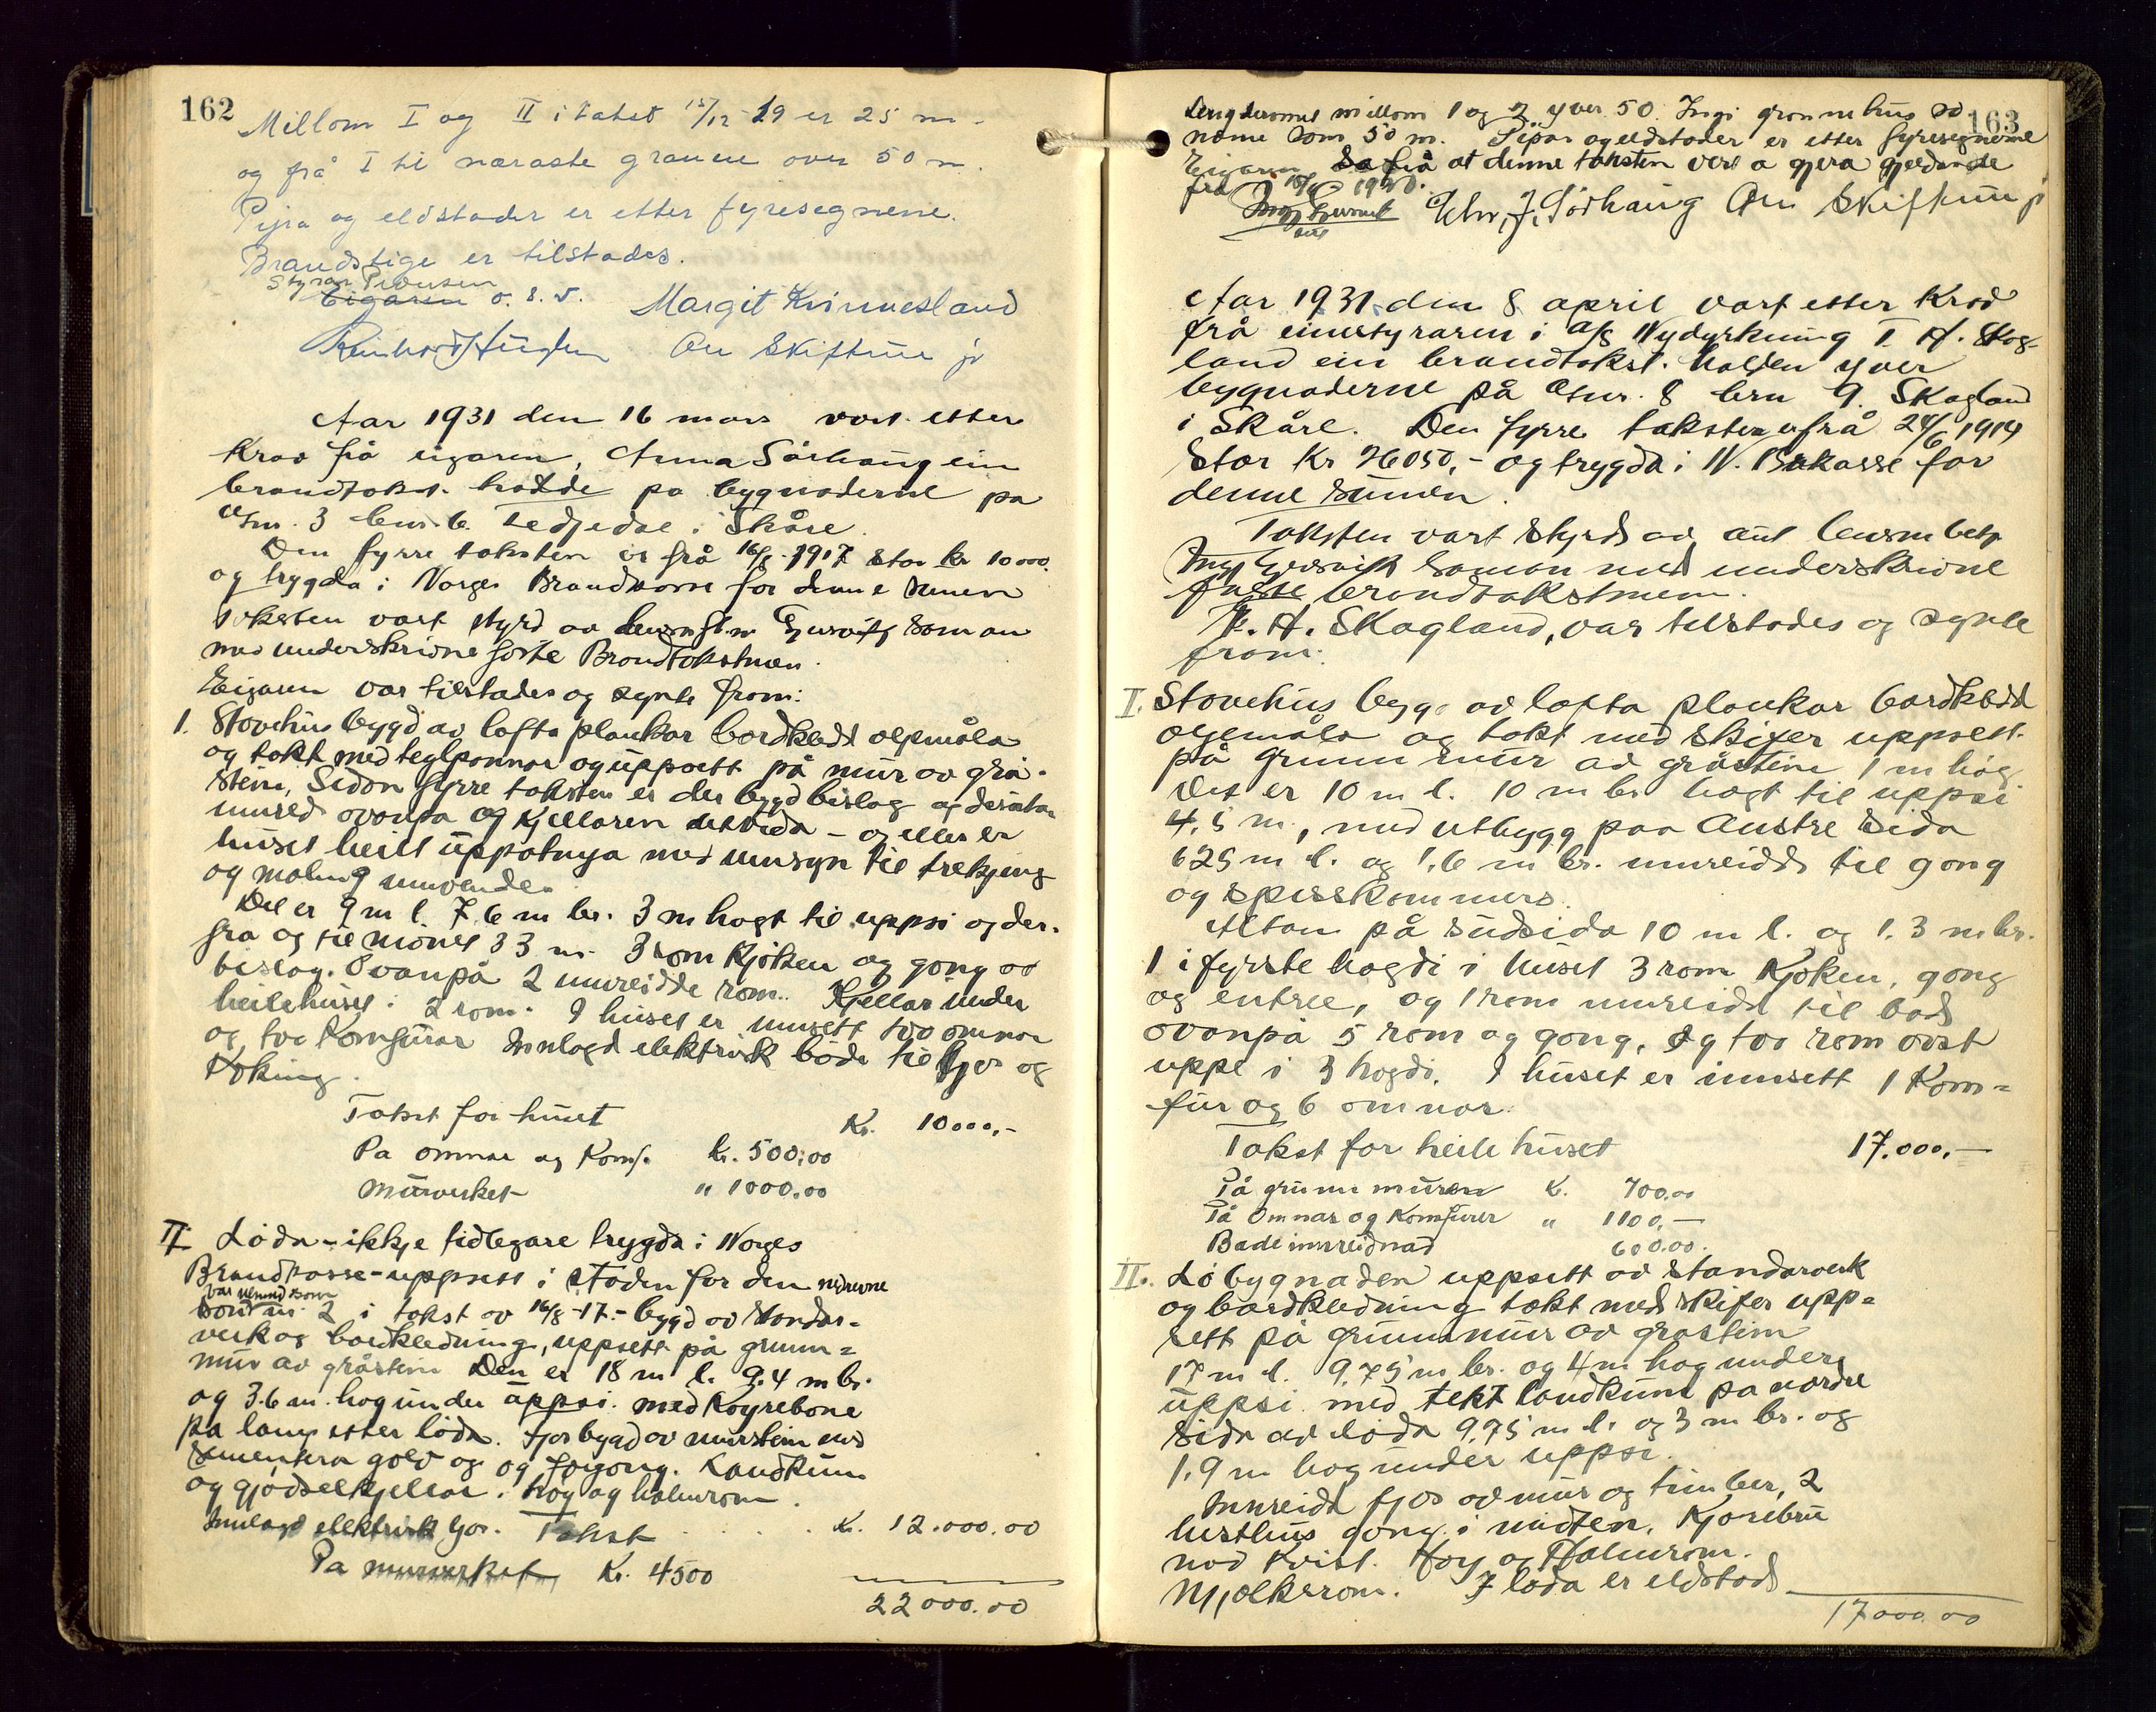 162
Millom I og II i takst 15/12-29 er 25 m.
og frå I til næraste granne over 50 m.
Pipa og eldstader er etter fyresegnene.
Brandstige er tilstades.
Styrar
Eigaren o. s. v. Margit Kvinnesland
Ou Skiftun jr
Aar 1931 den 16 mars vart etter
krav frå eigaren, Anna Sørhaug ein
brandtakst. hadde pa bygnaderne pa
Gnr. 3 bnr. 6 i Skåre.
Den fyrre taksten er frå 16/8-1917 stor kr 10000.
og trygda i Norges Brandkasse for denne sumen
Taksten vart styrd av saman
med underskrivne faste Brandtakstmen.
Eigaren var tilstades og synte fram:
1. Stovehus bygd av lafta plankar bordkledt oljemåla
og tekt med teglpannor og uppsett på mur av grå-
stein, Sidan fyrre taksten er der bygd bislag og
inreid ovanpa og kjellaren utvida - og elles er
huset heilt uppatnya med umsyn til trekjing
og maling innvendes
Det er 9 m l. 7.6 m br. 3 m høgt til uppsi og der-
fra og til mønet 33 m. 3 rom kjøken og gong av
bislag. Ovanpå 2 innreidde rom. Kjellar under
heile huset: 2 rom. I huset er innsett tvo omnar
og tvo Komfurar Innlagd elektrisk både til ljos og
koking.
Takst for huset Kr. 10000,-
Pa omnar og Komf. kr. 500,00
Mürverket " 1000.00
II. Løda - ikkje tidlegare trygda i Norges
Brandkasse - uppsett i staden for den nedrevne
var nemnd som
2 i takst av 16/8-17.- bygd av standar-
verk og bordkledning, uppsett på grunn=
mür av gråstein Den er 18 m l. 9.4 m br.
og 3.6 m. høg under uppsi. med Køyrebone
pa lang etter løda. fjos bygd av murstein med
sementera golv og og fjosgong. Landkum
og gjødselkjellar. høy og halmrom.
Innlagd elektrisk ljos. Takst . . . . Kr. 12.000.00
Pa murverket Kr. 4500
22000.00
163
Lengderomet millom 1 og 2 yver 50. Ingi grannehus so
nære som 50 m. Pipor og eldstader er etter fyresegnerne
Eigaren sa frå at denne taksten vert a gjera gjeldande
fra 15/4 1930.
Chr. J. Sørhaug Ou Skiftun jr
Aar 1931 den 8 april vart etter Krav
frå einestyraren i A/S Nydyrkning T. H. Skog-
land ein brandtakst. halden yver
bygnaderne på Gnr. 8 bnr 9. Skogland
i Skåre. Den fyrre taksten er frå 24/6 1919
Stor Kr 26050,- og trygda i N. Br.kasse for
denne sumen.
Taksten vart styrd av aut lensm betj.
saman med underskrivne
faste brandtakstmenn.
T. H. Skogland, var tilstades og synte
fram:
I. Stovehus bygd av lafta plankar bordkledd
oljemåla og tekt med skifer uppsett
på grunnmur av gråstein 1 m høg
Det er 10 m l. 10 m br høgt til uppsi
4,5 m., med utbygg paa Austre sida
625 m l. og 1,6 m br. innreidd til gong
og spisskammers.
Altan på sudsida 10 m l. og 1,3 m br.
I fyrste høgdi i huset 3 rom Kjøken, gong
og entree, og 1 rom innreidd til bad
ovanpå 5 rom og gong. Og tvo rom øvst
uppe i 3 høgdi. I huset er innsett 1 Kom=
fur og 6 omnar.
Takst for heile huset 17.000,-
På grunnmuren Kr. 700.00
På Omnar og Komfurer " 1100,-
Badeinnreidnad 600.00.
II. Løbygnaden uppsett av standarverk
og bordkledning tekt med skifer upp=
sett på grunnmur av gråstein
17 m l. 9,75 m br. og 4 m høg under
uppsi. med tekt landkum pa nørdre
sida av løda 9,75 m l. og 3 m br. og
1,9 m høg under uppsi.
Innreidd fjos av mur og timber, 2
hesthus gong i midten. Kjørebru
Høy og Halmrom.
Mjølkerom. I løda er eldstad
17000.00